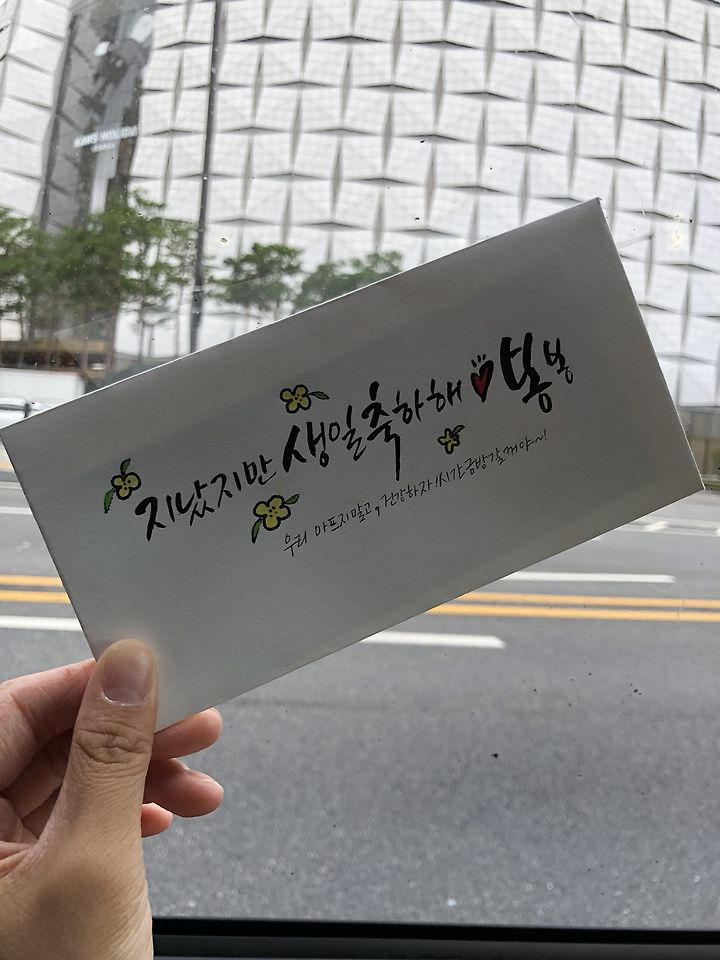 지났지만 생일축하해 봉봉
우리 아프지말고, 건강하자! 시간금방갈꺼야~!